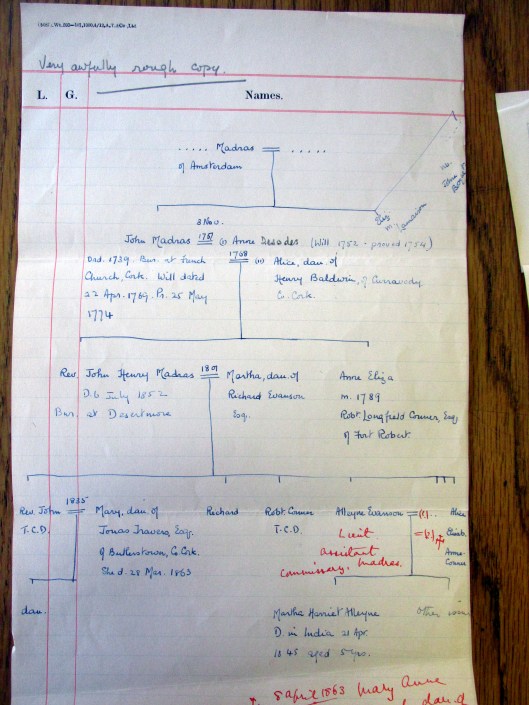 Very awfully rough copy.
L. G. Names.
..... Madras = .....
of Amsterdam
3 Nov.
John Madras 1767 (1) Anne Desodes (Will 1752 - proved 1754)
Ord. 1739. Bur. at French 1768 (11) Alice, dau. of
Church, Cork. Will dated Henry Baldwin, of Curravody
22 Apr. 1769. Pr. 25 May Co. Cork.
1774
Rev. John Henry Madras 1801 Martha, dau. of Anne Eliza
D. 6 July 1852 Richard Evanson m. 1789
Bur. at Desertmore Esq. Robt. Longfield Conner, Esq
of Fort Robert.
Rev. John 1835 Mary, dau. of Richard Robt. Conner Alleyne Evanson = (1).. Alice
T.C.D. Jonas Travers, Esq. T.C.D. Lieut = (2) Elizab.
of Butlerstown, Co. Cork. assistant Anne
She d. 28 Mar. 1863 Commissary, Madras. Conner
dau. Martha Harriet Alleyne Other
D. in India 21 Apr.
1845 aged 5 yrs.
8 April 1863 Mary Anne
dau. of